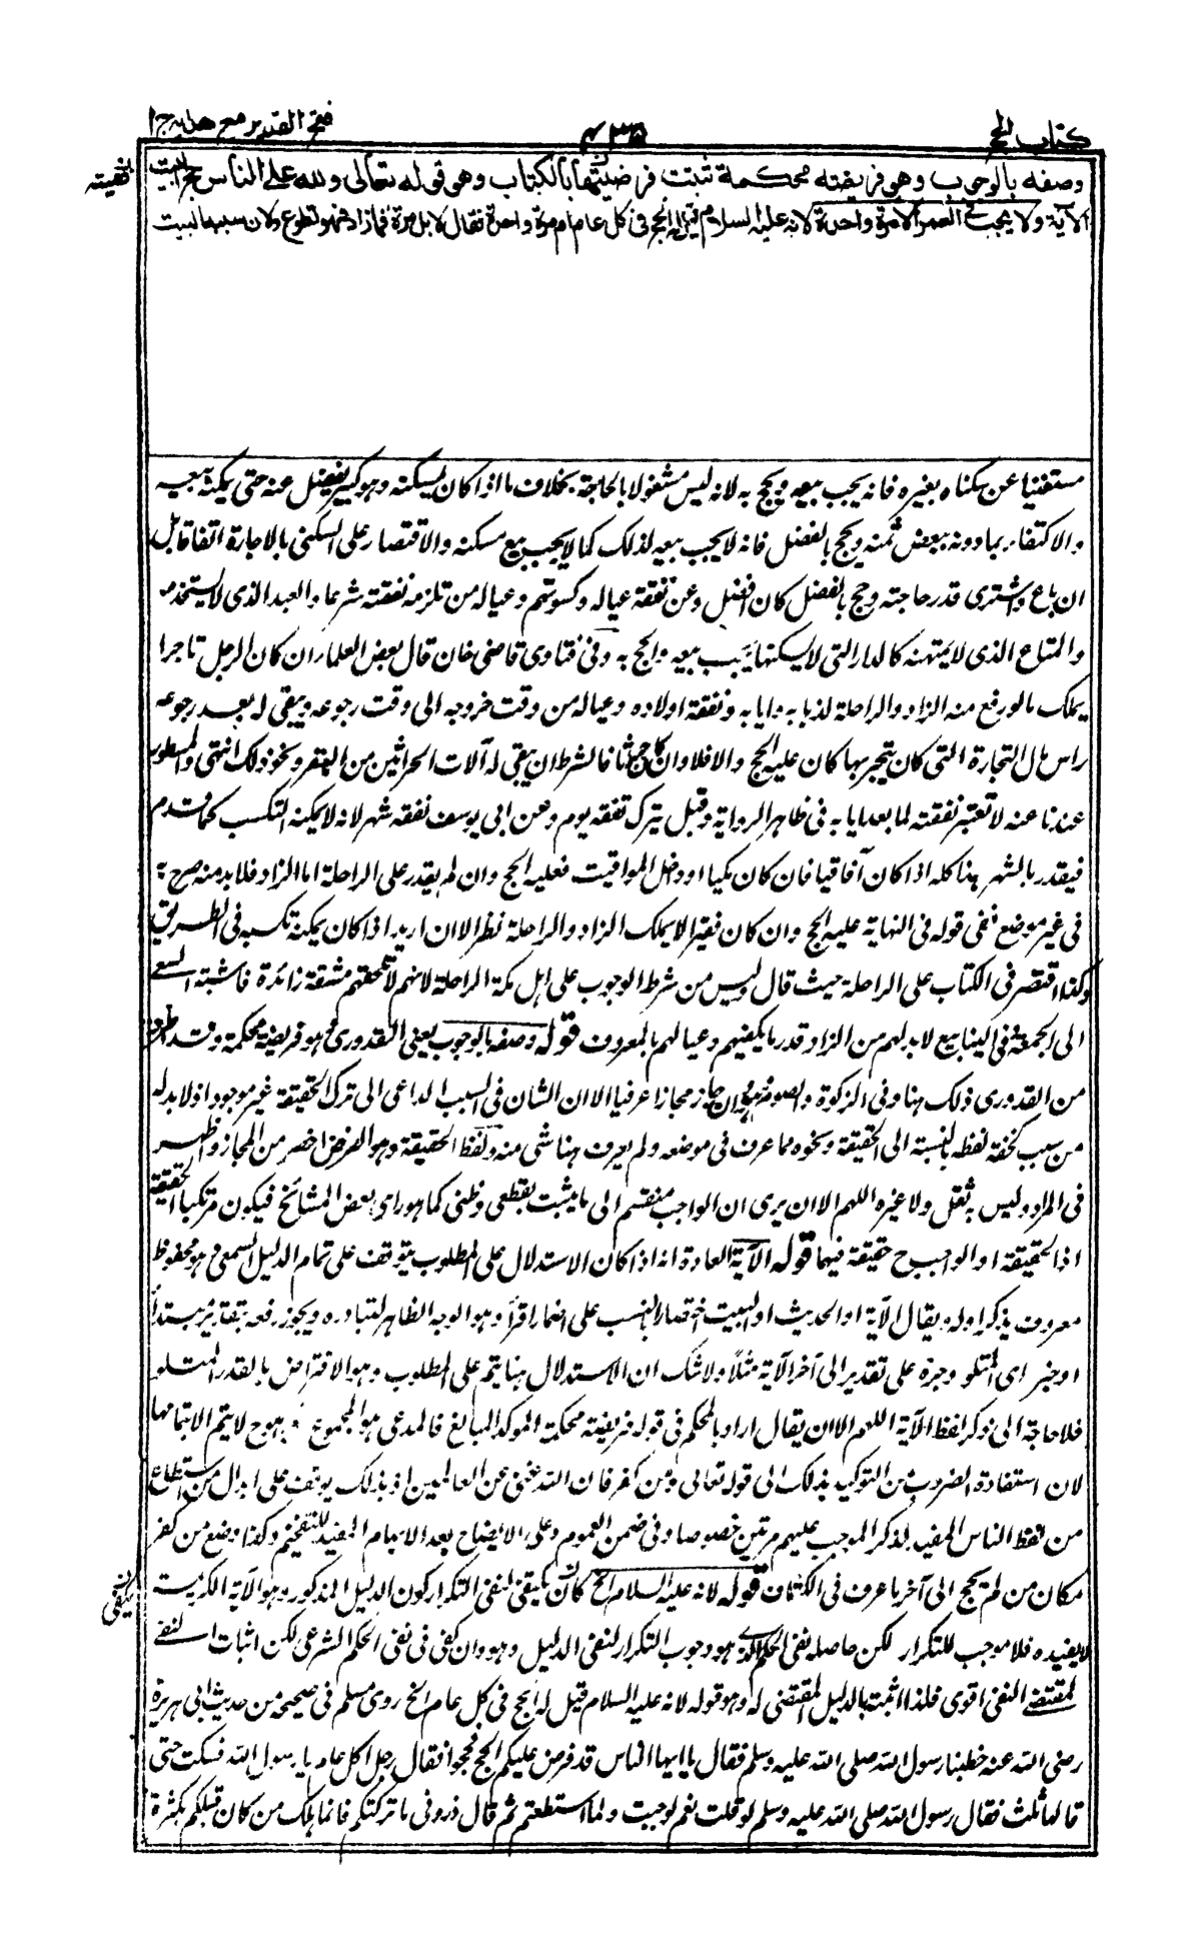 كتاب الحج
٤٣٥
فتح القدير مع هدايه ج ا
وصفه بالوجوب وهو فريضة محكمة ثبتت فرضيتها بالكتاب وهو قوله تعالى ولله على الناس حج البيت
الآية ولا يجب في العمر الا مرة واحدة لانه عليه السلام قيل له الحج في كل عام ام مرة واحدة فقال لا بل مرة فما زاد فهو تطوع ولان سببها البيت
مستغنيا عن سكناه بغيره فانه يجب بيعه ويحج به لانه ليس مشغولا بالحاجة بخلاف ما اذا كان يسكنه وهو كبير يفضل عنه حتى يمكنه بيعه
والاكتفاء بما دونه ببعض ثمنه ويحج بالفضل فانه لا يجب بيعه لذلك كما لا يجب بيع مسكنه والاقتصار على السكنى بالاجارة اتفاقا بل
ان باع واشترى قدر حاجته وحج بالفضل كان افضل وعن نفقة عياله وكسوتهم وعياله من تلزمه نفقته شرعا والعبد الذى لا يستخدمه
والمتاع الذى لا يمتهنه كالدار التى لا يسكنها يجب بيعه والحج به وفى فتاوى قاضى خان قال بعض العلماء ان كان الرجل تاجرا
يملك مالو رفع منه الزاد والراحلة لذهابه وايابه ونفقة اولاده وعياله من وقت خروجه الى وقت رجوعه ويبقى له بعد رجوعه
راس مال التجارة التى كان يتجر بها كان عليه الحج والا فلا وان كان حراثا فالشرط ان يبقى له آلات الحراثين من البقر ونحو ذلك انتهى والمسطور
عندنا عنه لا تعتبر نفقته لما بعد ايابه فى ظاهر الرواية وقيل يترك نفقه يوم وعن ابى يوسف نفقه شهر لانه لا يمكنه التكسب كما قدم
فيقدر بالشهر هذا كله اذا كان آفاقيا فان كان مكيا او داخل المواقيت فعليه الحج وان لم يقدر على الراحلة اما الزاد فلا بد منه صرح به
فى غير موضع ففى قوله فى النهاية عليه الحج وان كان فقيرا لا يملك الزاد والراحلة نظر الا ان اريد اذا كان يمكنه تكسبه فى الطريق
وكذا اقتصر فى الكتاب على الراحلة حيث قال وليس من شرط الوجوب على اهل مكة الراحلة لانهم لا تلحقهم مشقة زائدة فاشبه السعى
الى الجمعة وفى الينابيع لا بد لهم من الزاد قدر ما يكفيهم وعيالهم بالمعروف قوله وصفه بالوجوب يعنى القدورى وهو فريضة محكمة وقد اطرد
من القدورى ذلك هنا وفى الزكوة والصوم وهو وان جاز مجازا عرفيا الا ان الشان فى السبب الداعى الى ترك الحقيقة غير موجود اذ لا بد له
من سبب كخفة لفظه بالنسبة الى الحقيقة ونحوه مما عرف فى موضعه ولم يعرف هنا شى منه ولفظ الحقيقة وهو الفرض اخصر من المجاز واظهر
فى المراد وليس بثقل ولا غيره اللهم الا ان يرى ان الواجب منقسم الى ما يثبت بقطعى وظنى كما هو راى بعض المشائخ فيكون مرتكبا الحقيقة
اذ الحقيقة او الواجب ح حقيقة فيهما قوله الآية العادة انه اذا كان الاستدلال على المطلوب يتوقف على تمام الدليل السمعى وهو محفوظ
معروف يذكر اوله ويقال الآية او الحديث او البيت اختصارا بالنصب على اضمار اقرأ وهو الوجه الظاهر لتبادره ويجوز رفعه بتقدير مبتدأ
او خبر اى المتلو وجره على تقدير الى آخر الآية مثلا ولا شك ان الاستدلال هنا يتم على المطلوب وهو الافتراض بالقدر المتلو
فلا حاجة الى ذكر لفظ الآية اللهم الا ان يقال اراد بالمحكم فى قوله فريضة محكمة الموكد المبالغ فالمدعى هو المجموع وهو ح لا يتم الا بتمامها
لان استفادة الضروب من التوكيد بذلك الى قوله تعالى ومن كفر فان الله غنى عن العالمين اذ بذلك يوقف على ابدال من استطاع
من لفظ الناس المفيد لذكر الموجب عليهم مرتين خصوصا وفى ضمن العموم وعلى الايضاح بعد الابهام المفيد للتفخيم وكذا وضع من كفر
مكان من لم يحج الى آخر ما عرف فى الكشاف قوله لانه عليه السلام الخ كان يكفى لنفى التكرار كون الدليل المذكور وهو الآية الكريمة
لا يفيده فلا موجب للتكرار لكن حاصله نفى الحكم الذى هو وجوب التكرار لنفى الدليل وهو وان كفى فى نفى الحكم الشرعى لكن اثبات النفى
لمقتضى النفى اقوى فلذا اثبته بالدليل المقتضى له وهو قوله لانه عليه السلام قيل له الحج فى كل عام الخ روى مسلم فى صحيحه من حديث ابى هريرة
رضى الله عنه خطبنا رسول الله صلى الله عليه وسلم فقال يا ايها الناس قد فرض عليكم الحج فحجوا فقال رجل اكل عام يا رسول الله فسكت حتى
قالها ثلث فقال رسول الله صلى الله عليه وسلم لو قلت نعم لوجبت ولما استطعتم ثم قال ذرونى ما تركتكم فانما هلك من كان قبلكم بكثرة